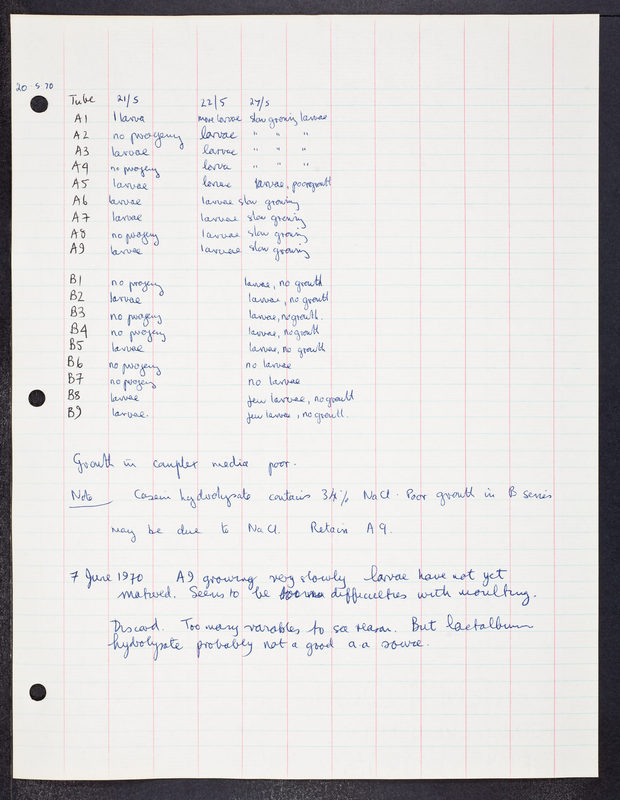 20.5.70
Tube 21/5 22/5 27/5
A1 1 larva more larvae slow growing larvae
A2 no progeny larvae " " "
A3 larvae larvae " " "
A4 no progeny larva " " "
A5 larvae larvae larvae, poor growth
A6 larvae larvae slow growing
A7 larvae larvae slow growing
A8 no progeny larvae slow growing
A9 larvae larvae slow growing
B1 no progeny larvae, no growth
B2 larvae larvae, no growth
B3 no progeny larvae, no growth.
B4 no progeny larvae, no growth
B5 larvae larvae, no growth
B6 no progeny no larvae
B7 no progeny no larvae
B8 larvae few larvae, no growth
B9 larvae. few larvae, no growth.
Growth in complex media poor.
Note Casein hydrolysate contains 34% NaCl. Poor growth in B series
may be due to NaCl. Retain A9.
7 June 1970 A9 growing very slowly larvae have not yet
matured. Seems to be difficulties with moulting.
Discard. Too many variables to see reason. But lactalbumin
hydrolysate probably not a good a.a source.